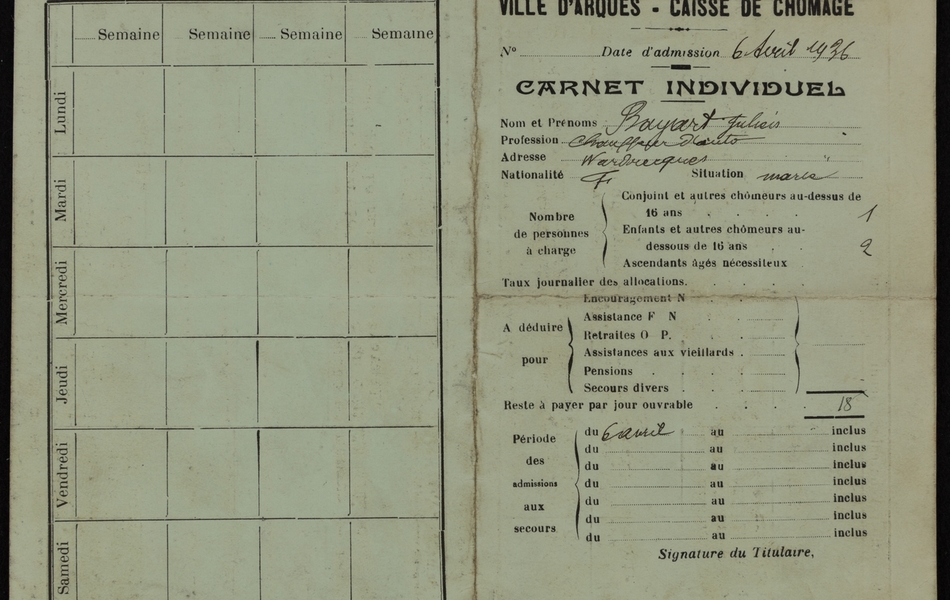 Semaine Semaine Semaine Semaine
Lundi
Mardi
Mercredi
Jeudi
Vendredi
Samedi
VILLE D'ARQUES - CAISSE DE CHOMAGE
N° Date d'admission 6 Avril 1936
CARNET INDIVIDUEL
Nom et Prénoms Bayart
Profession Chauffeur d'auto
Adresse Wardrecques
Nationalité F Situation marié
Nombre de personnes à charge
Conjoint et autres chômeurs au-dessus de
16 ans . . . . 1
Enfants et autres chômeurs au-
dessous de 16 ans . . 2
Ascendants âgés nécessiteux
Taux journalier des allocations. . . . .
A déduire pour
Encouragement N . .
Assistance F N . .
Retraites O P. . .
Assistances aux vieillards .
Pensions . . . .
Secours divers . . .
Reste à payer par jour ouvrable . . . . 18
Période des admissions aux secours
du 6 avril au inclus
du au inclus
du au inclus
du au inclus
du au inclus
du au inclus
du au inclus
Signature du Titulaire,